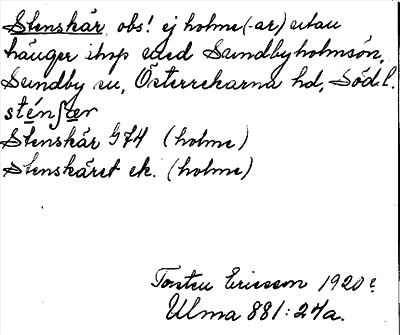 Stenskär, obs! ej holme(-ar) utan
hänger ihop med Sundbyholmsön,
Sundby sn, Österrekarna hd, Södl.
sténʃær
Stenskär G74 (holme)
Stenskäret ek. (holme)
Torsten Ericsson 1920
Ulma 881:24a.